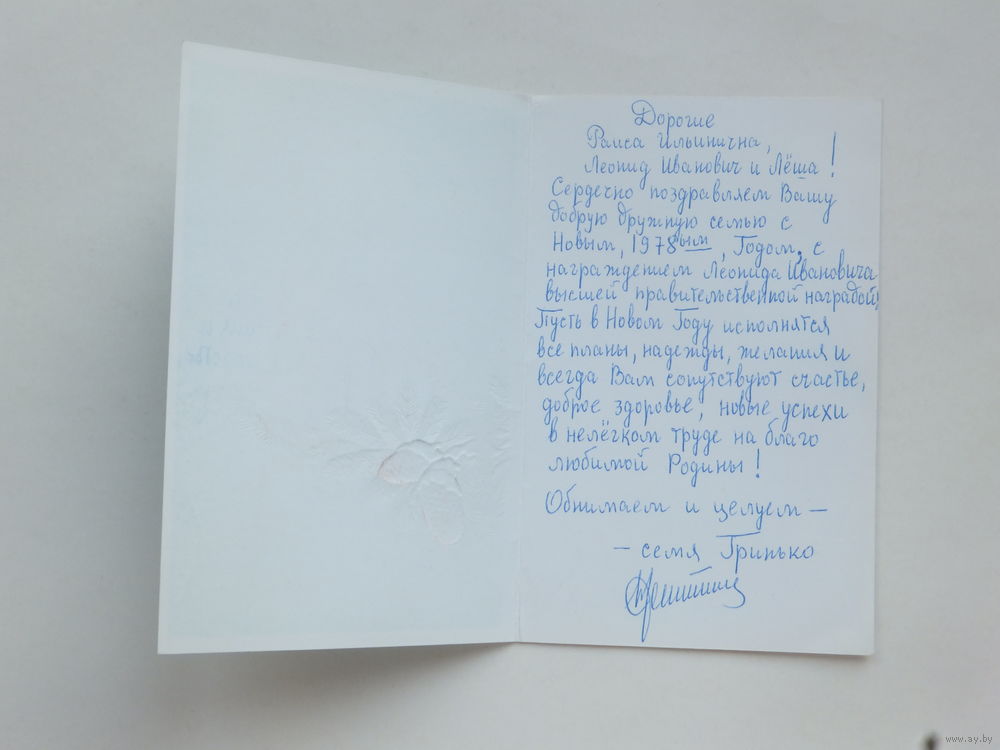 Дорогие
Раиса Ильинична,
Леонид Иванович и Лёша!
Сердечно поздравляем Вашу
добрую дружную семью с
Новым, 1978ым, Годом, с
награждением Леонида Ивановича
высшей правительственной наградой!
Пусть в Новом Году исполнятся
все планы, надежды, желания и
всегда Вам сопутствуют счастье,
доброе здоровье, новые успехи
в нелёгком труде на благо
любимой Родины!
Обнимаем и целуем —
— семя Гринько
www.ay.by